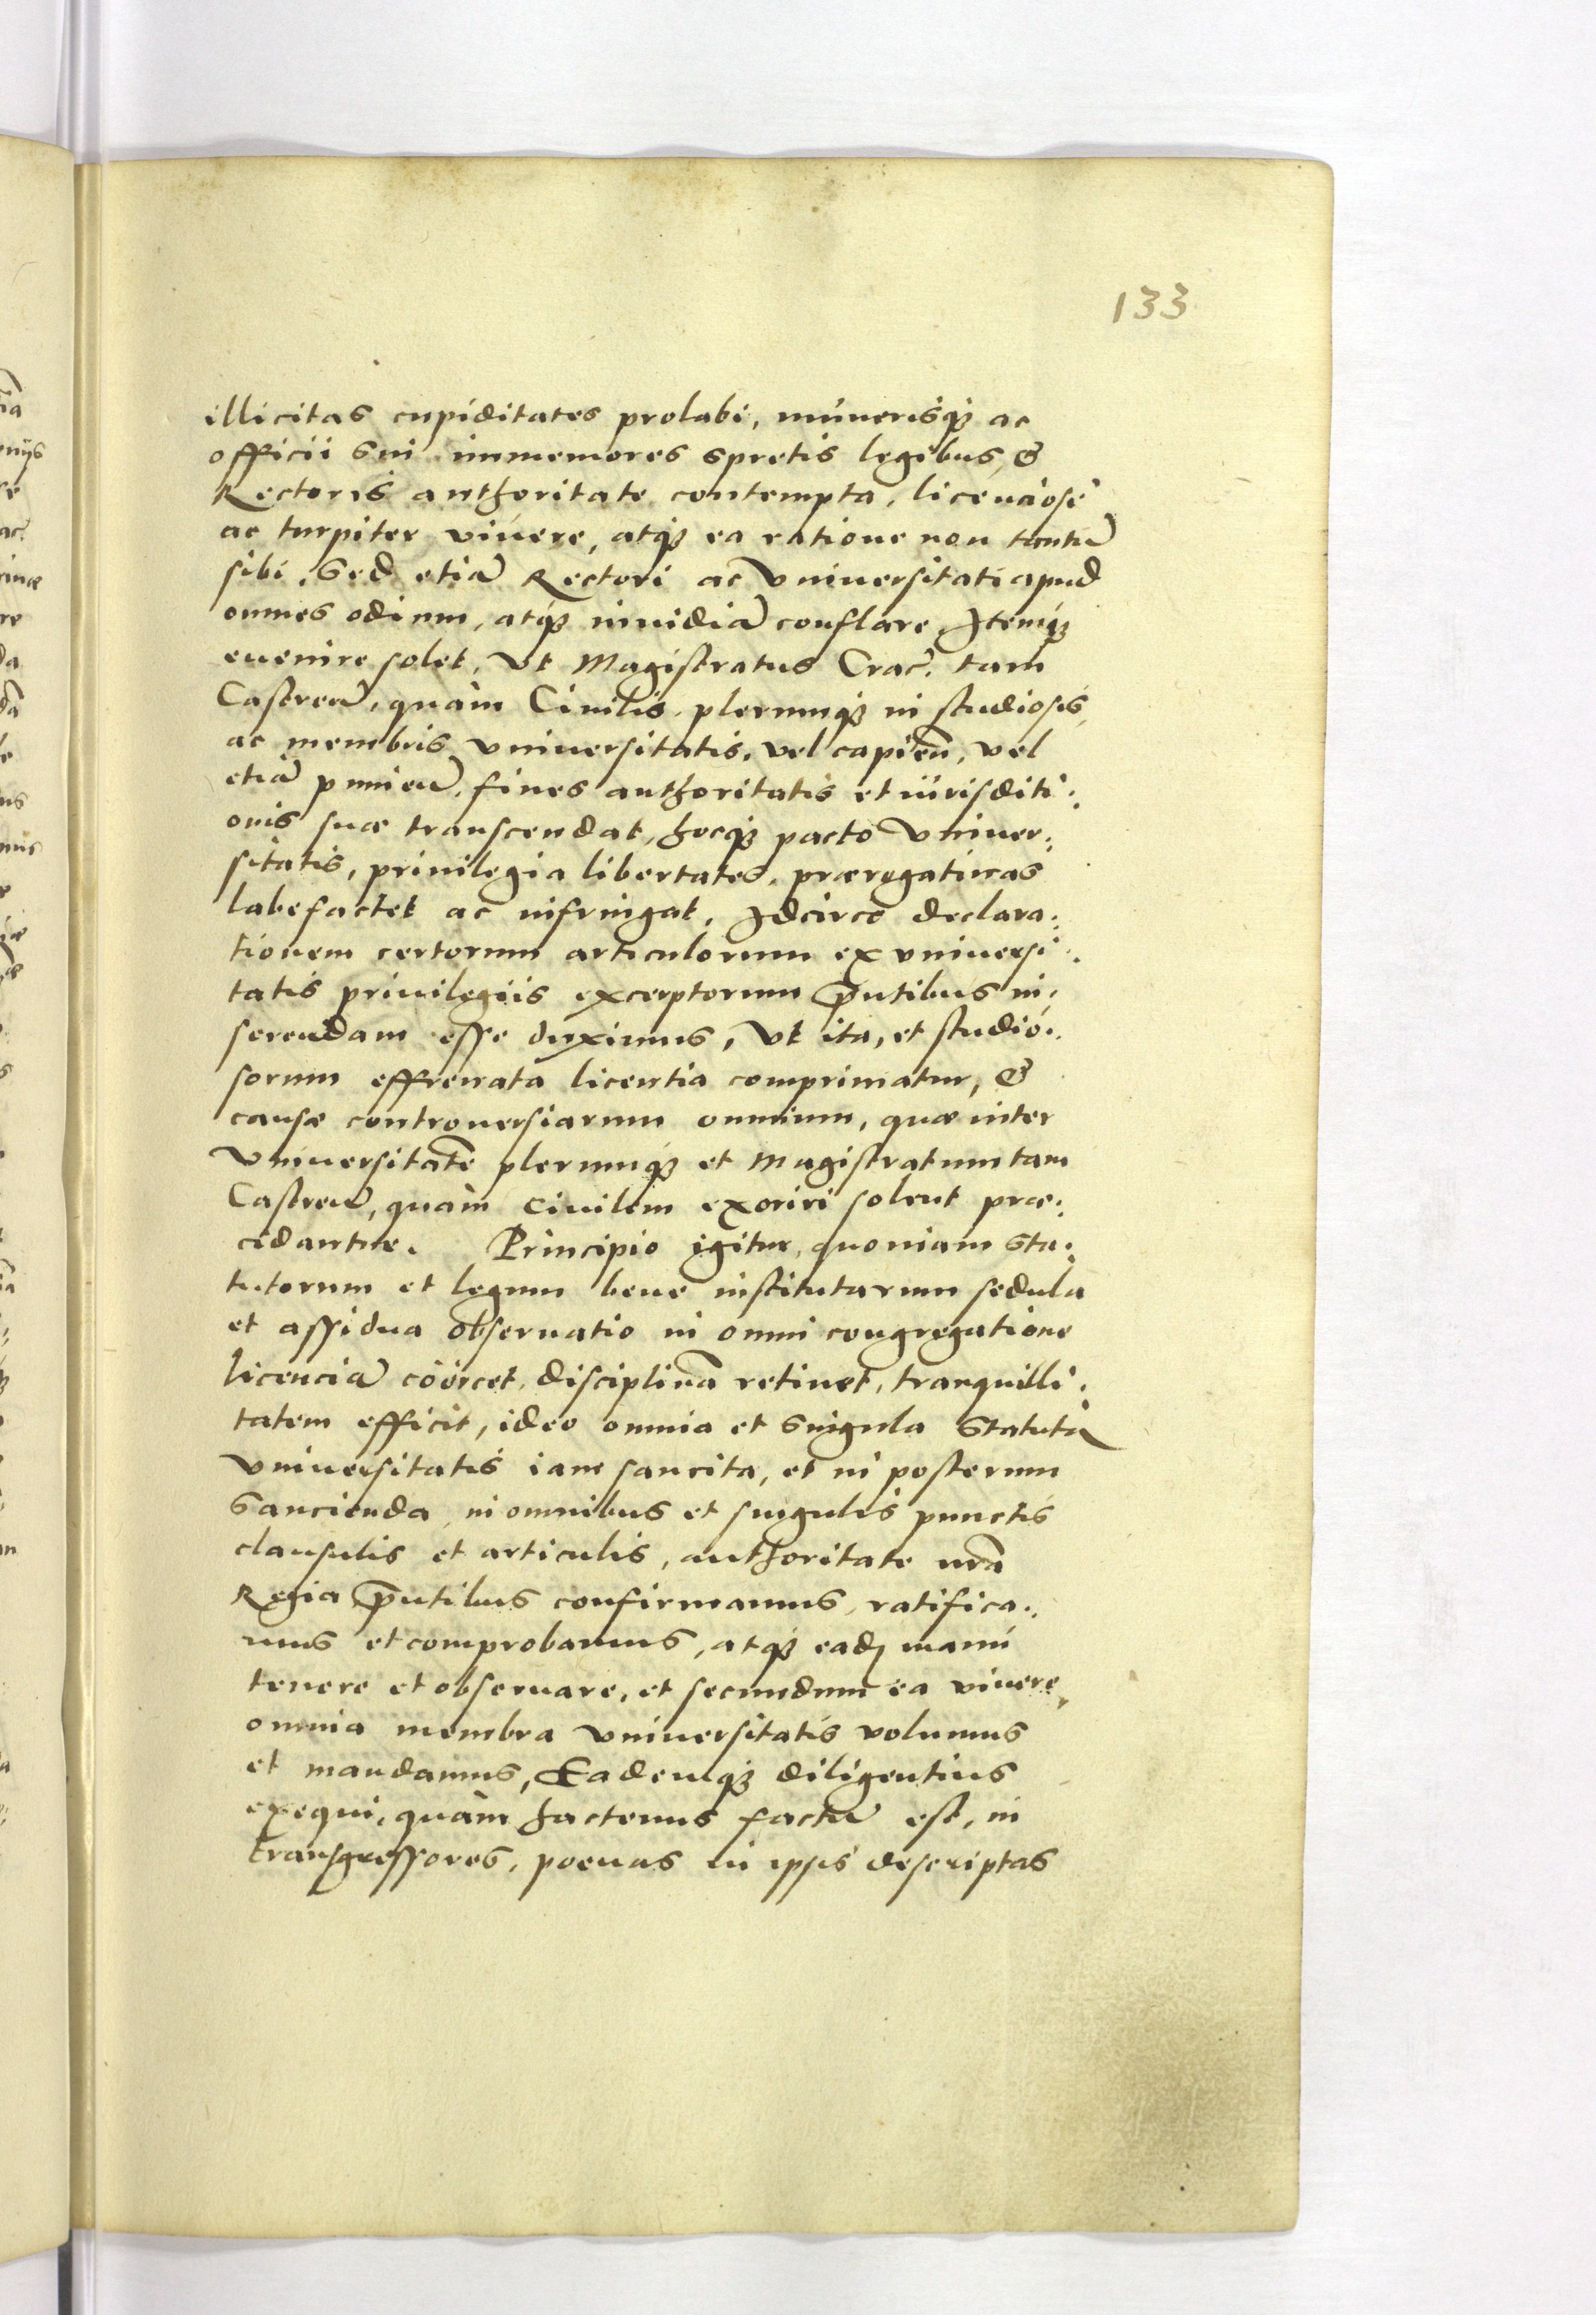 133
illicitas cupiditates prolabi, munerisq́ꝫ ac
officii sui immemores spretis legibus, &
Rectoris authoritate contempta, licenciosè
ac turpiter viuere, atq́ꝫ ea ratione non tantũ
sibi, sed etiã Rectori ac Vniuersitati apud
omnes odium, atq́ꝫ inuidiã conflare. Itemq́ꝫ
euenire solet, vt Magistratus Crac̃. tam
Castreñ, quàm Ciuilis, plerumq́ꝫ in studiosis,
ac membris vniuersitatis, vel capieñ, vel
etiã punieñ, fines authoritatis et iurisditi:
onis suæ transcendat, hocq́ꝫ pacto Vniuer:
sitatis, priuilegia libertates, prærogatiuas
labefactet ac infringat, Idcirco declara:
tionem certorum articulorum ex vniuersi:
tatis priuilegiis excerptorum p̃ntibus in:
serendam esse duximus, Vt ita, et studio:
sorum effrenata licentia comprimatur, &
causæ controuersiarum omnium, quæ inter
Vniuersitatẽ plerumq́ꝫ et Magistratum tam
Castreñ, quàm Ciuilem exoriri solent præ:
cidantur. Principio igitur, quoniam sta:
tutorum et legum bene institutarum sedula
et assidua obseruatio in omni congregatione
licenciã coërcet, disciplinã retinet, tranquilli:
tatem efficit, ideo omnia et singula Statuta
Vniuersitatis iam sancita, et in posterum
sancienda, in omnibus et singulis punctis
clausulis et articulis, authoritate nr̃a
Regia p̃ntibus confirmamus, ratifica:
mus et comprobamus, atq́ꝫ eadꝫ manu
tenere et obseruare, et secundum ea viuere,
omnia membra vniuersitatis volumus
et mandamus, Eademq́ꝫ diligentius
exequi, quàm hactenus factũ est, in
transgressores, poenas in ipsis descriptas